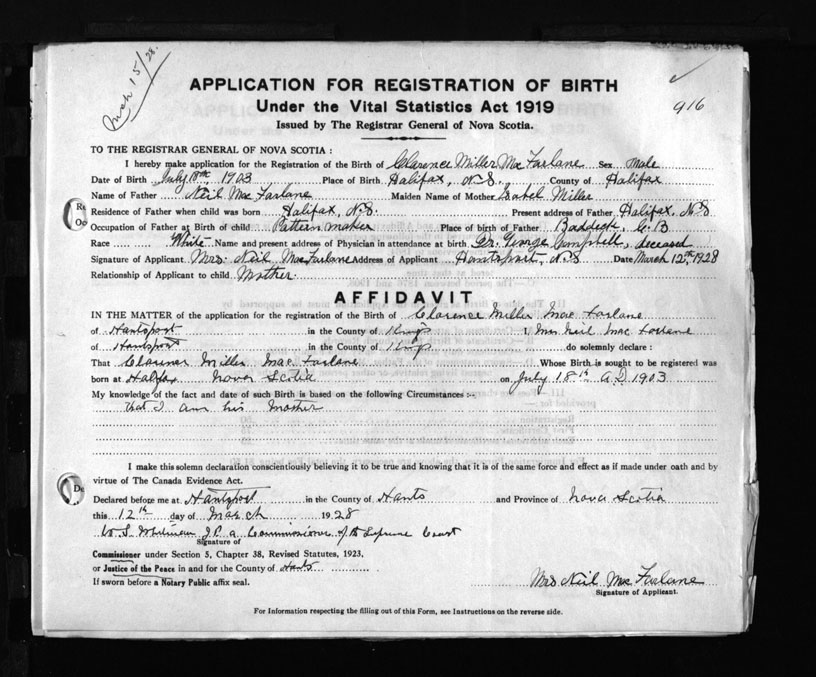 March 15/28.
916
APPLICATION FOR REGISTRATION OF BIRTH
Under the Vital Statistics Act 1919
Issued by The Registrar General of Nova Scotia.
TO THE REGISTRAR GENERAL OF NOVA SCOTIA :
I hereby make application for the Registration of the Birth of Clarence Miller MacFarlane Sex Male
Date of Birth July 18th, 1903 Place of Birth Halifax, N.S. County of Halifax
Name of Father Neil MacFarlane Maiden Name of Mother Isabel Miller
Residence of Father when child was born Halifax, N.S. Present address of Father Halifax, N.S
Occupation of Father at Birth of child Patternmaker Place of birth of Father Baddeck, C.B
Race White Name and present address of Physician in attendance at birth Dr. George Campbell, deceased
Signature of Applicant Mrs. Neil MacFarlane Address of Applicant Hantsport, N.S Date March 12th, 1928
Relationship of Applicant to child Mother.
AFFIDAVIT
IN THE MATTER of the application for the registration of the Birth of Clarence Miller Mac Farlane
of Hantsport in the County of Kings I, Mrs Neil Mac Farlane
of Hantsport in the County of Kings do solemnly declare :
That Clarence Miller Mac Farlane Whose Birth is sought to be registered was
born at Halifax Nova Scotia on July 18th A.D. 1903
My knowledge of the fact and date of such Birth is based on the following Circumstances :-
that I am his Mother
I make this solemn declaration conscientiously believing it to be true and knowing that it is of the same force and effect as if made under oath and by
virtue of The Canada Evidence Act.
Declared before me at Hantsport in the County of Hants and Province of Nova Scotia
this 12th day of March 1928
W.S. J.P. a Commissioner of the Supreme Court
Signature of
Commissioner under Section 5, Chapter 38, Revised Statutes, 1923,
or Justice of the Peace in and for the County of Hants
If sworn before a Notary Public affix seal.
Mrs Neil Mac Farlane
Signature of Applicant.
For Information respecting the filling out of this Form, see Instructions on the reverse side.